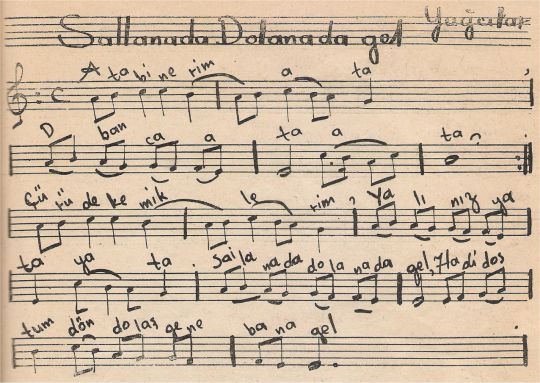 Yağcılar
Sallanada Dolanada gel
A ta bi ne rim a ta
D ban ca a ta a ta
Çü rü de ke mik le rim, Ya lı nız ya
ta ya ta. Salla nada do la nada gel, Hadi dos
tum dön dolaş gene ba na gel